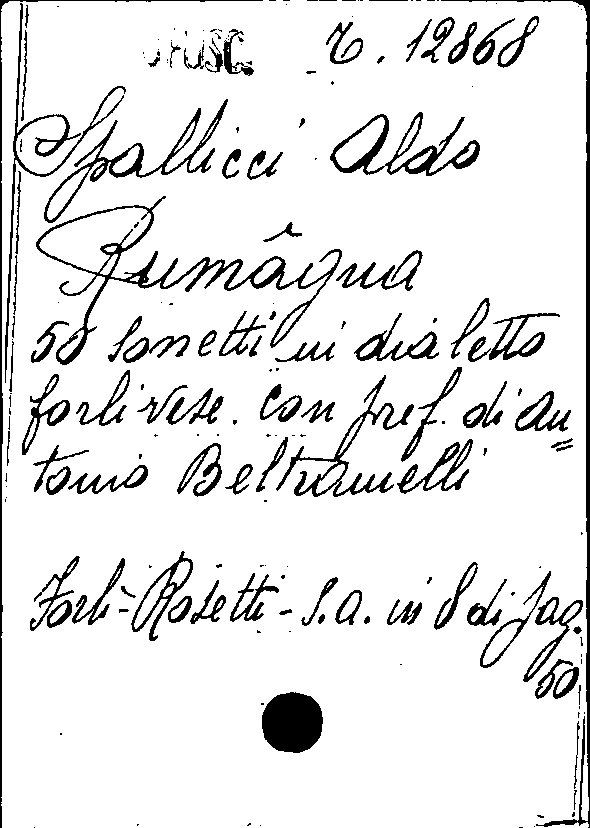 OPUSC. T. 12868
Spallicci Aldo
Rumâgna
50 sonetti in dialetto
forlivese. Con pref. di An=
tonio Beltramelli
Forlì - Rosetti - S.A. in 8 di pag.
50